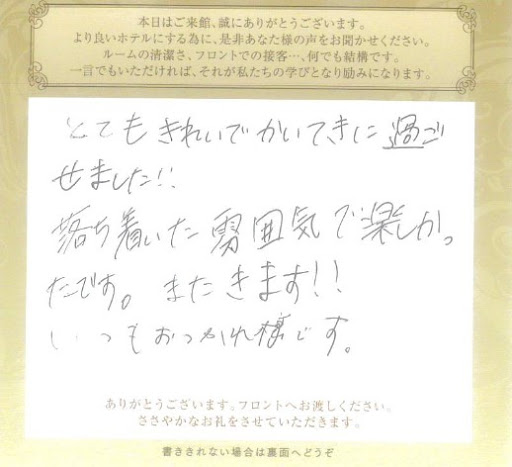 本日はご来館、誠にありがとうございます。
より良いホテルにする為に、是非あなた様の声をお聞かせください。
ルームの清潔さ、フロントでの接客…、何でも結構です。
一言でもいただければ、それが私たちの学びとなり励みになります。
とてもきれいでかいてきに過ご
せました!!
落ち着いた雰囲気で楽しかっ
たです。またきます!!
いつもおつかれ様です。
ありがとうございます。フロントへお渡しください。
ささやかなお礼をさせていただきます。
書ききれない場合は裏面へどうぞ